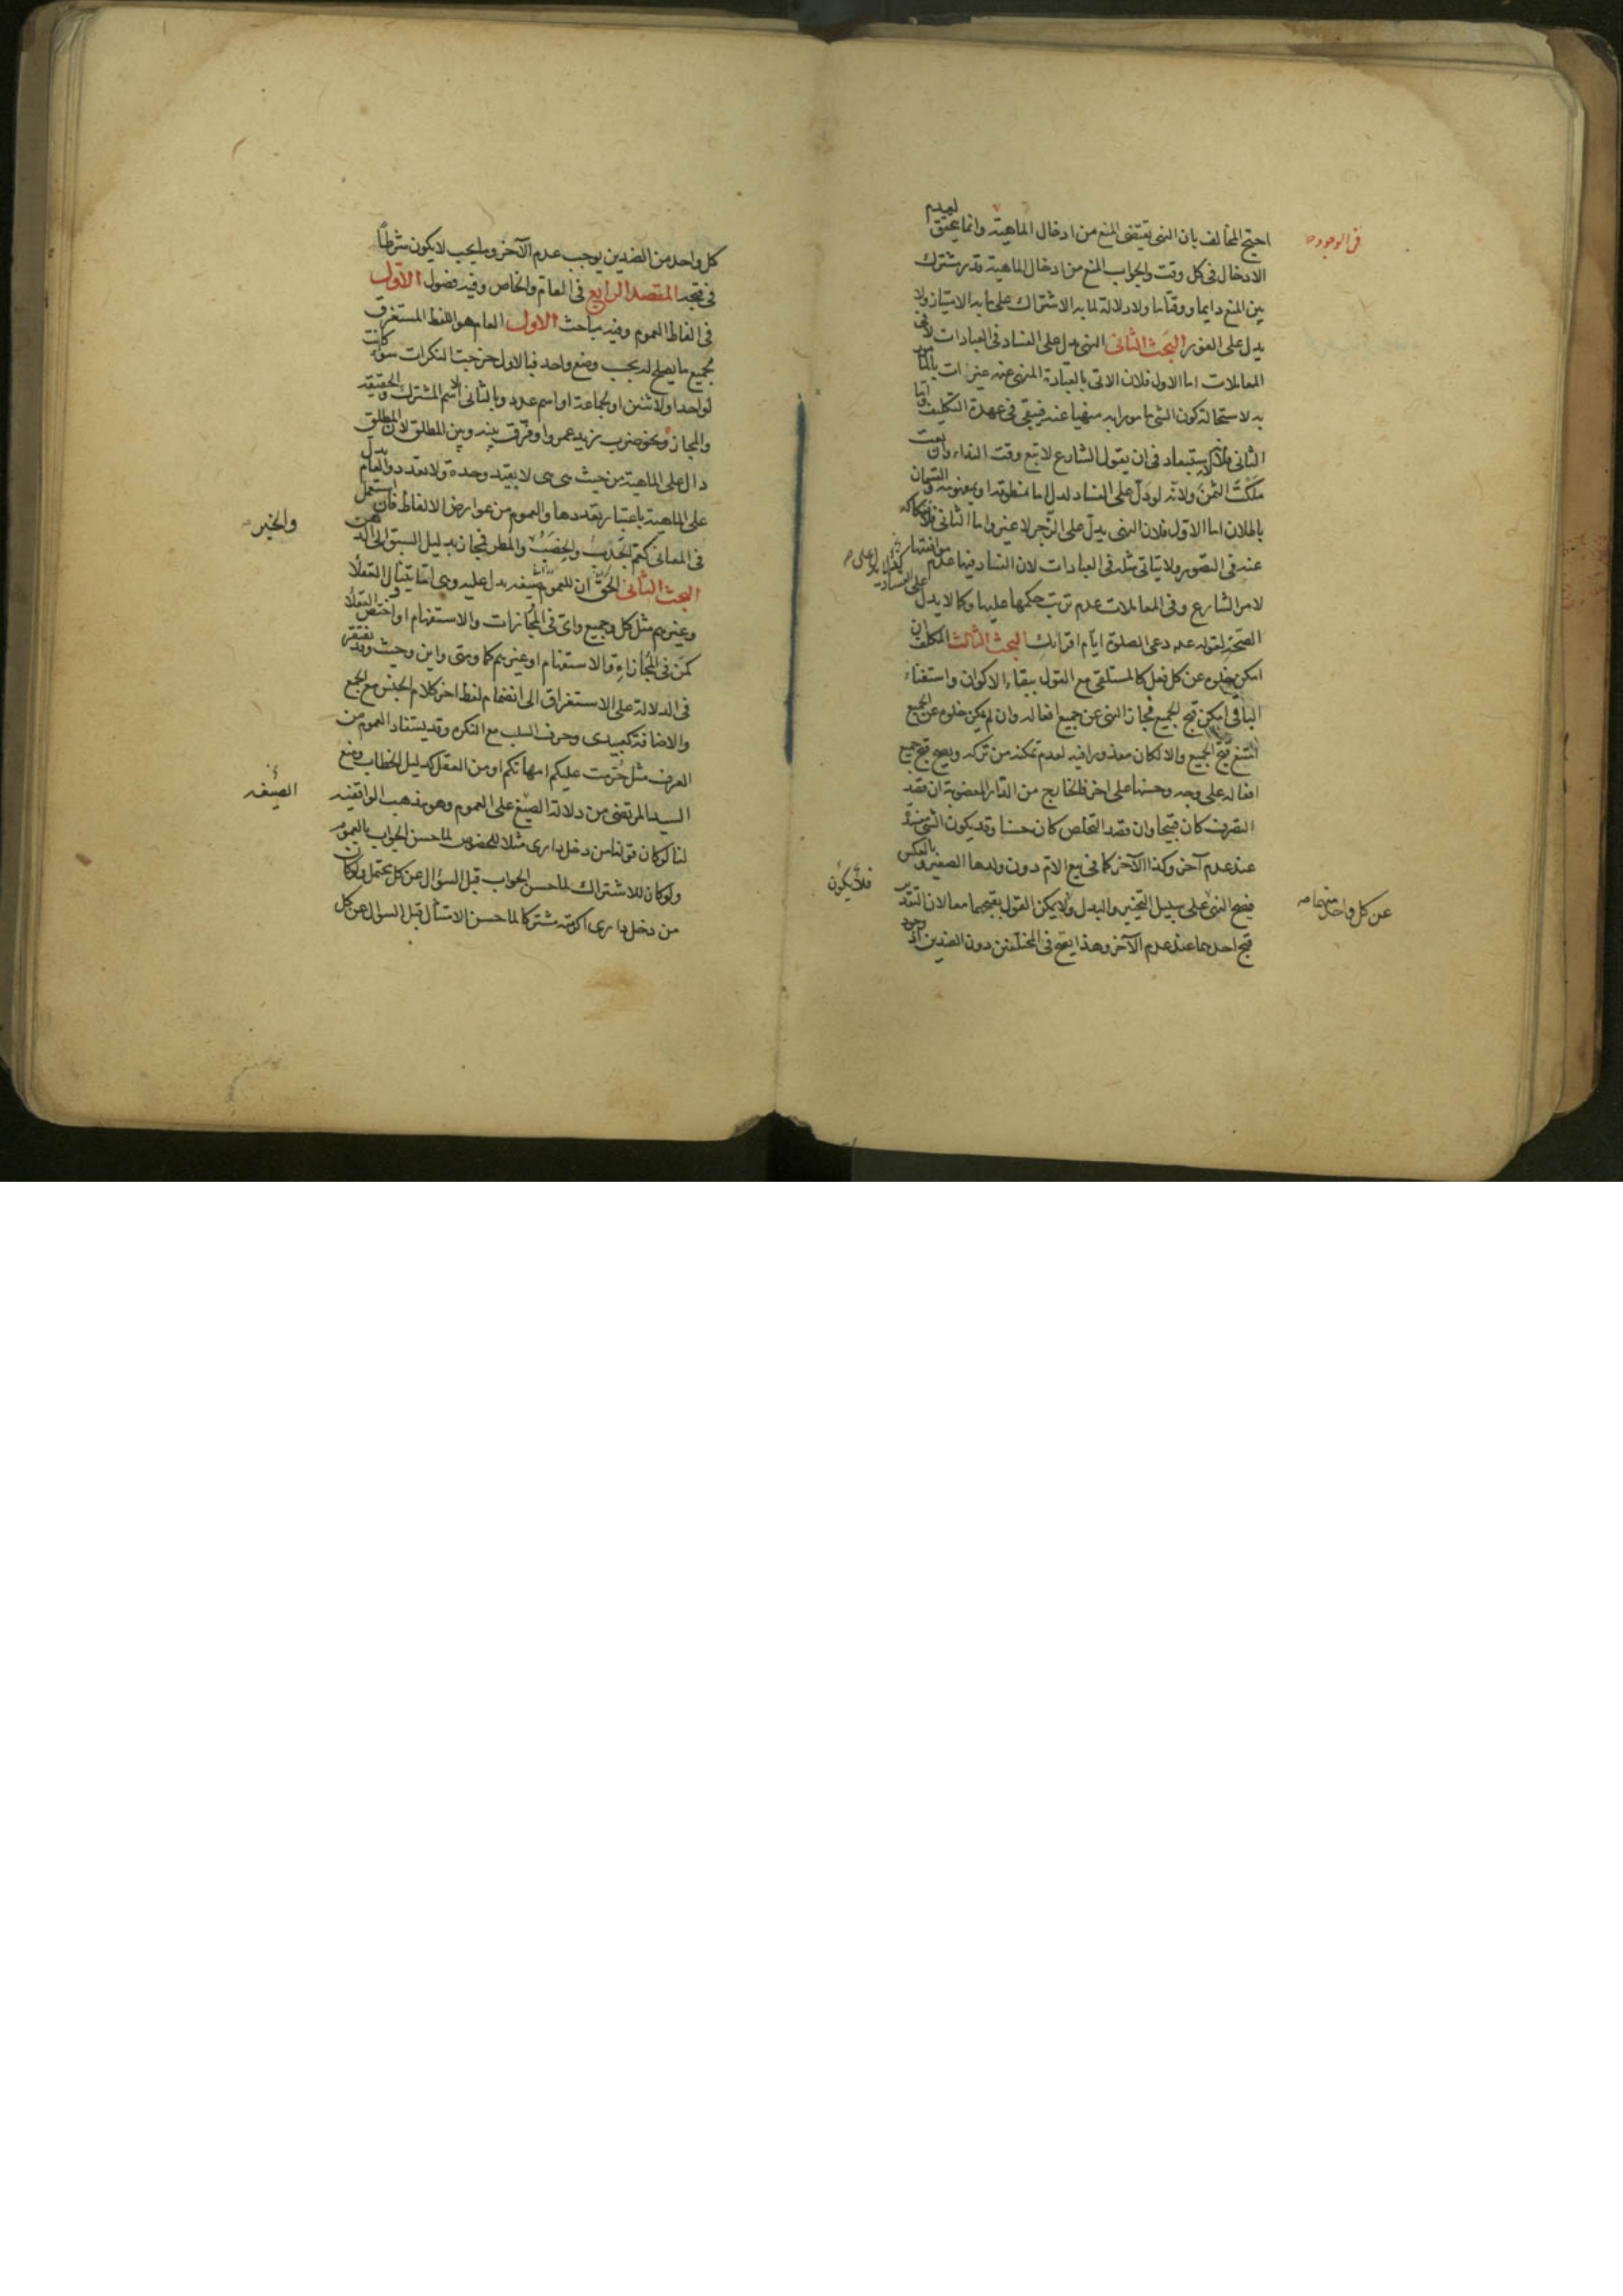 احتج المخالف بان النهى يقتضى المنع من ادخال الماهية وانما يتحقق لعدم
فى الوجود
الادخال فى كل وقت والجواب المنع من ادخال الماهية قدر مشترك
بين المنع دايما ووقتا ما ولا دلالة لما به الاشتراك على ما به الامتياز ولا
يدل على الفور البحث الثانى النهى يدل على الفساد فى العبادات لا فى
المعاملات اما الاول فلان الاتى بالعبادة المنهى عنه غير ات بالمامور
به لاستحالة كون الشى مامورا به منهيا عنه فيبقى فى عهدة التكليف واما
الثانى فلانه لا استبعاد فى ان يقول الشارع لا تبع وقت النداء وان بعت
ملكت الثمن ولانه لو دل على الفساد لدل اما بمنطوقه او بمفهومه والقسمان
باطلان اما الاول فلان النهى يدل على الزجر لا غير واما الثانى فلانفكاكه
عنه فى التصور ولا يتاتى مثله فى العبادات لان الفساد فيها عدم موافقتها
لامر الشارع وفى المعاملات عدم ترتب حكمها عليها وكما لا يدل
على الفساد
الصحة لقوله عم دعى الصلوة ايام اقرائك البحث الثالث المكلف ان
امكن خلوه عن كل فعل كالمستلقى مع القول ببقاء الاكوان واستغناء
الباقى امكن قبح الجميع فجاز النهى عن جميع افعاله وان لم يكن خلوه عن الجميع
امتنع قبح الجميع والا لكان معذورا فيه لعدم تمكنه من تركه ويصح قبح جميع
افعاله على وجه وحسنها على اخر فالخارج من الدار المغصوبة ان قصد
التصرف كان قبيحا وان قصد التخلص كان حسنا وقد يكون الشى مفسدة
عند عدم آخر وكذا الآخر كما فى بيع الام دون ولدها الصغير وبالعكس
فيصح النهى على سبيل التخيير والبدل ولا يمكن القول بقبحهما معا لان التقدير
عن كل واحد منهما
قبح احدهما عند عدم الآخر وهذا يصح فى المختلفين دون الضدين اذ وجود
فلا يكون
كل واحد من الضدين يوجب عدم الآخر وما يجب لا يكون شرطا
فى قبحه المقصد الرابع فى العام والخاص وفيه فصول الاول
فى الفاظ العموم وفيه مباحث الاول العام هو اللفظ المستغرق
لجميع ما يصلح له بحسب وضع واحد فبالاول خرجت النكرات سواء كانت
لواحد او لاثنين او لجماعة او اسم عدد وبالثانى الاسم المشترك والحقيقة
والمجاز ونحو ضرب زيد عمروا وفرق بينه وبين المطلق لان المطلق
دال على الماهية من حيث هى هى لا بقيد وحدة ولا تعدد والعام يدل
على الماهية باعتبار تعددها والعموم من عوارض الالفاظ فان استعمل
فى المعانى كعم الجدب والخصب والمطر فمجاز بدليل السبق الى الذهن
والخير
البحث الثانى الحق ان للعموم صيغة يدل عليه وهى اما يتناول العقلاء
وغيرهم مثل كل وجميع واى فى المجازات والاستفهام او اختص العقلا
كمن فى المجازاة والاستفهام او غيرهم كما ومتى واين وحيث وقد يفتقر
فى الدلالة على الاستغراق الى انضمام لفظ اخر كلام الجنس مع الجمع
والاضافة كعبيدى وحرف السلب مع النكرة وقد يستفاد العموم من
العرف مثل حرمت عليكم امهاتكم او من العقل كدليل الخطاب ومنع
السيد المرتضى من دلالة الصيغ على العموم وهو مذهب الواقفية
الصيغة
لنا لو كان قولنا من دخل دارى مثلا للخصوص لما حسن الجواب بالعموم
ولو كان للاشتراك لما حسن الجواب قبل السؤال عن كل محتمل ولو كان
من دخل دارى اكرمته مشتركا لما حسن الامتثال قبل السؤال عن كل